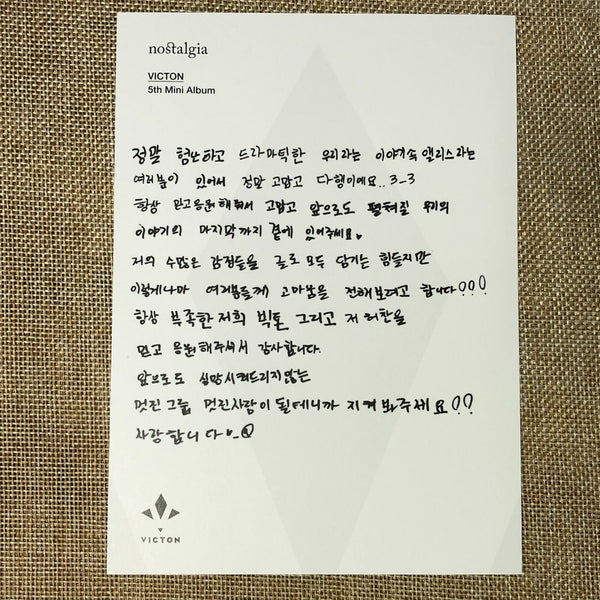 nostalgia
VICTON
5th Mini Album
정말 험난하고 드라마틱한 우리라는 이야기속 앨리스라는
여러분이 있어서 정말 고맙고 다행이에요.. 3_3
항상 믿고응원해줘서 고맙고 앞으로도 펼쳐질 우리의
이야기의 마지막까지 곁에 있어주세요
저의 수많은 감정들을 글로 모두 담기는 힘들지만
이렇게나마 여러분들께 고마움을 전해보려고 합니다!!!
항상 부족한 저희 빅톤 그리고 저 허찬을
믿고 응원해주셔서 감사합니다.
앞으로도 실망시켜드리지않는
멋진그룹 멋진사람이 될테니까 지켜봐주세요!!
사랑합니다
VICTON